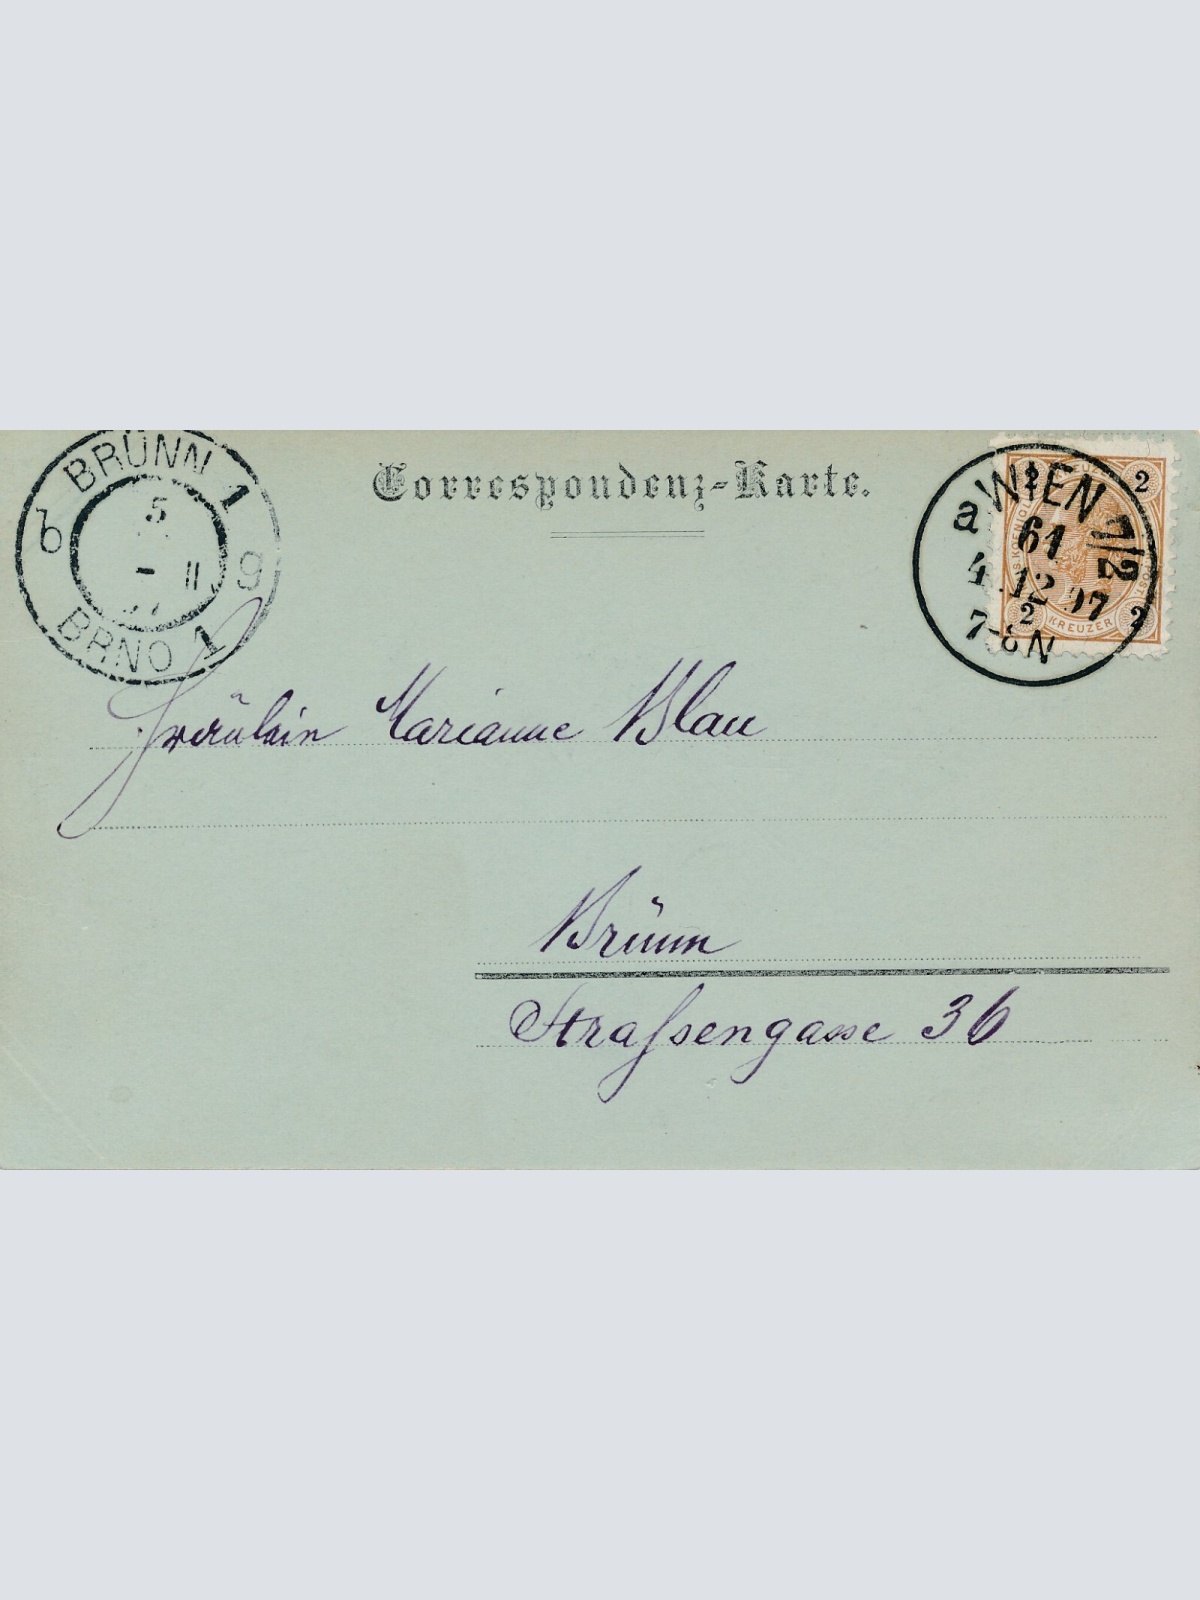 BRÜNN 1
5
- II
b g
BRNO 1
Correspondenz-Karte.
a WIEN 7/2
61
4.12 97
7-8 N
2 2
2 2
KREUZER
Fräulein Marianne Blau
Brünn
Strassengasse 36